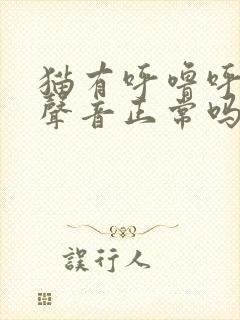 猫有呼噜呼
聲音正常吗
誤行人